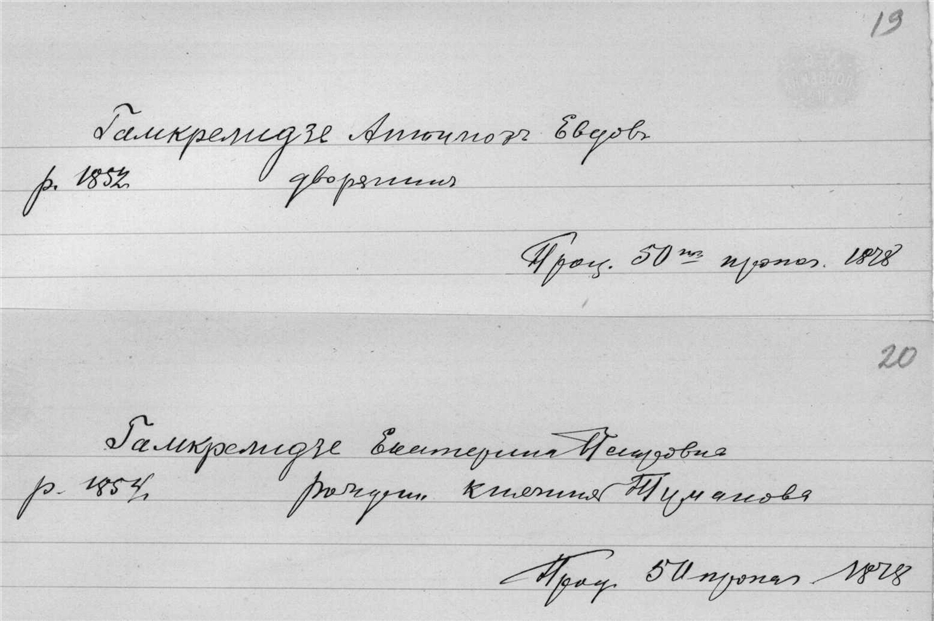 19
Гамкрелидзе Антиподъ Евдовъ
р. 1852 дворянинъ
Проц. 50ти пропаг. 1878
20
Гамкрелидзе Екатерина Петровна
р. 1854 рожден. княжна Туманова
Проц. 50 пропаг 1878